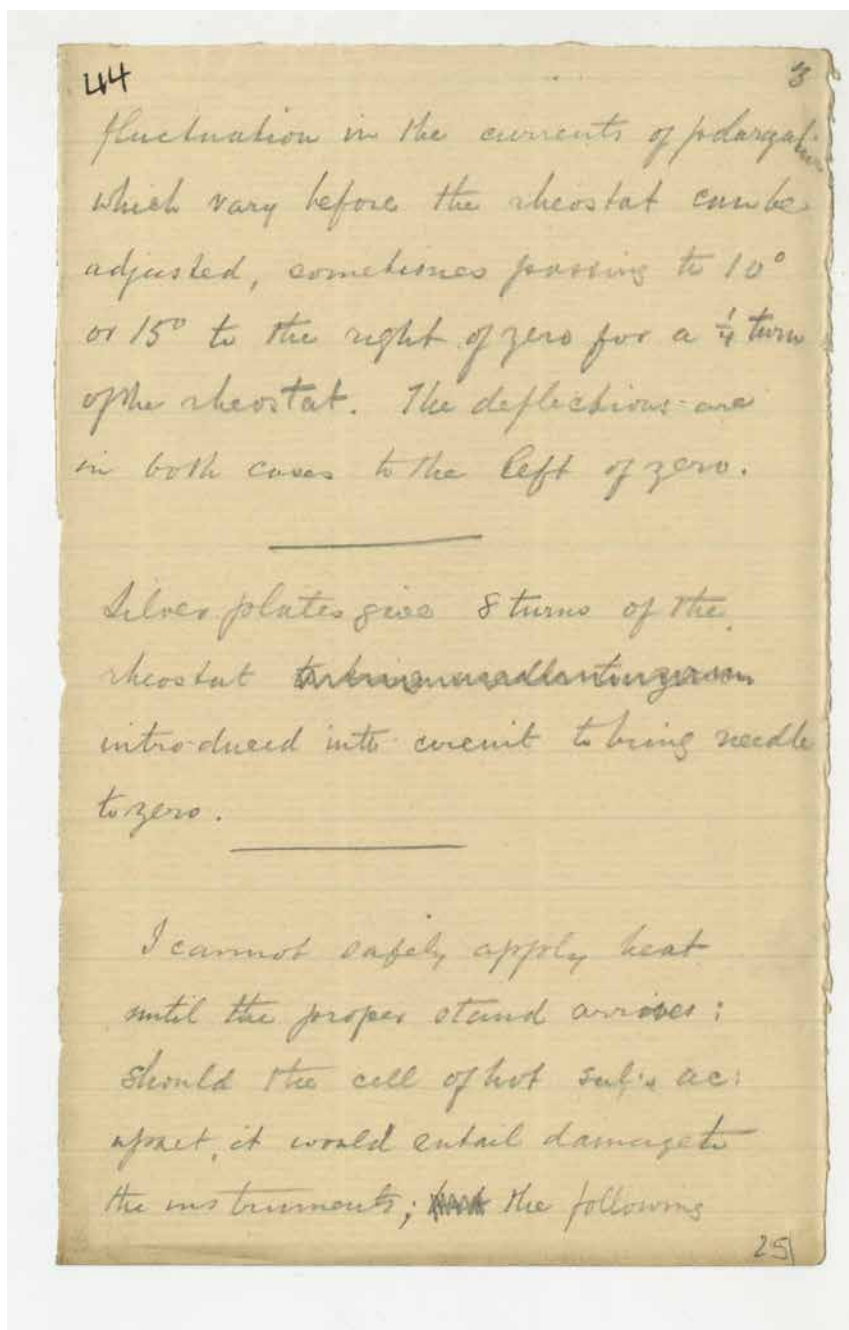 44
3
fluctuation in the currents of polarization
which vary before the rheostat can be
adjusted, sometimes passing to 10°
or 15° to the right of zero for a ¼ turn
of the rheostat. The deflections are
in both cases to the left of zero.
Silver plates give 8 turns of the
rheostat
introduced into circuit to bring needle
to zero.
I cannot safely apply heat
until the proper stand arrives;
should the cell of hot sul:c ac:
upset, it would entail damage to
the instruments; the following
25